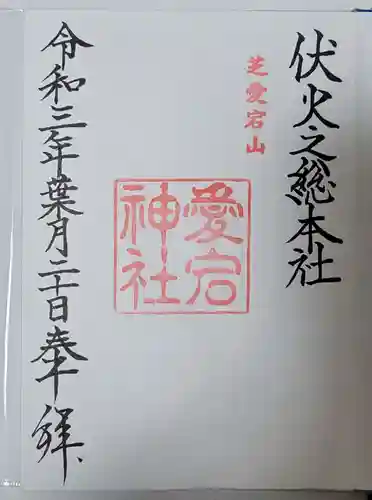 伏火之總本社
芝愛宕山
愛宕神社
令和三年葉月二十日奉拝